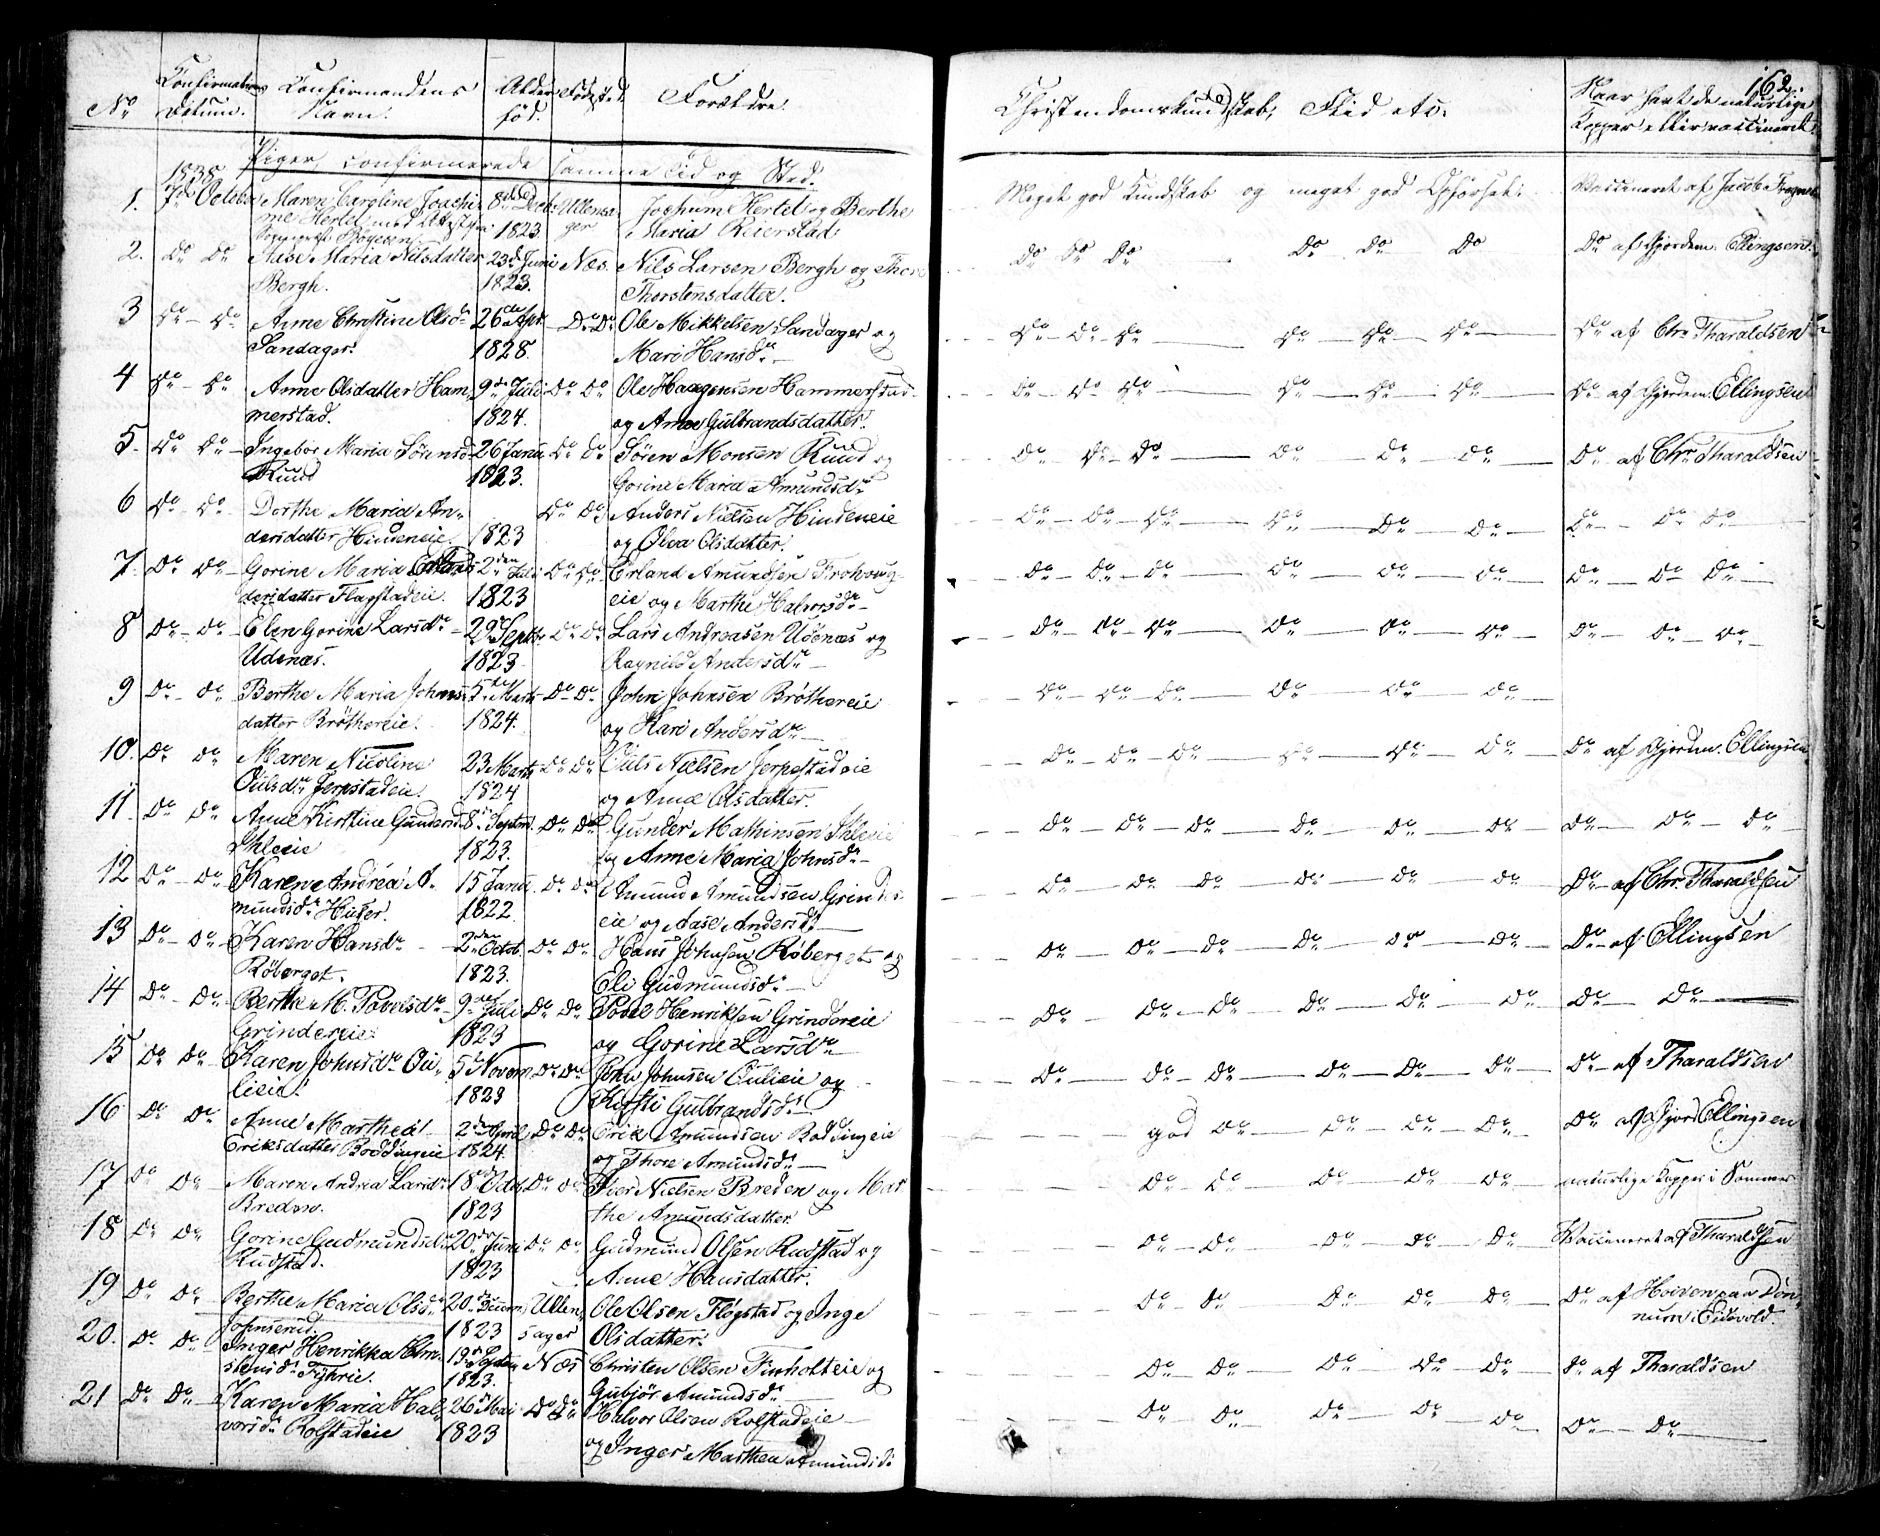 162.
No Confirmations Datum. Confirmandens Navn. Alder, fød. Fødested. Forældre. Christendomskundskab, Flid etc. Naar havt de naturlige Kopper eller vaccineret
Piger, confirmerede samme Tid og Sted.
1838
1. 7de October Maren Caroline Joachi- 8de Decb: Ullensa- Jochum Hertel og Berthe Meget god Kundskab og meget god Opførsel. Vaccineret af Jacob
me Hertel 1823 ger Maria Reierstad
2. Do Do Aase Maria Nilsdatter 23d Juni Næs. Nils Larsen Bergh og Thore Do Do Do Do Do Do Do af Gjordem. Ellingsen
Bergh. 1823. Thorstensdatter.
3 Do - Do Anne Christine Olsdr 26de Apr. Do Do Ole Mikkelsen Sandager og Do - Do - Do Do Do Do Do af Chr. Tharaldsen
Sandager. 1828. Mari Hansdr
4 Do - Do Anne Olsdatter Ham- 9de Juli Do Do Ole Haagensen Hammerstad Do - Do Do Do Do Do Do af Gjordem. Ellingsen
merstad. 1824. og Anne Gulbrandsdatter.
5. Do Do Ingebor Maria Sørensd. 26 Janu. Do Do Søren Monsen Ruud og Do Do Do Do Do Do Do af Chr. Tharaldsen
Ruud 1823. Gorine Maria Amundsdr
6 Do - Do Dorthe Maria An- Do Do Anders Nielsen Hindeneie Do - Do - Do Do Do Do Do - Do Do
dersdatter Hindeneie. 1823 og Olea Olsdatter.
7. Do Do Gorine Maria 2den Juli Do Do Erland Amundsen Frohoug- Do - Do - Do Do Do Do Do - Do Do
dersdatter Flagstadeie. 1823 eie og Marthe Halvorsdr
8 Do - Do Elen Gorine Larsdr 29 Septbr. Do Do Lars Andreasen Udenæs og Do - Do - Do Do Do Do Do - Do - Do
Udenæs. 1823 Ragnild Andersdr
9 Do - Do Berthe Maria Johns- 5te Marts Do Do John Johnsen Brøthereie Do - Do - Do Do Do Do
datter Brøthereie. 1824. og Kari Andersdr
10. Do Do Maren Nicoline 23 Marts Do Do Ouls Nielsen Jerpstadeie Do - Do - Do Do Do Do Do af Gjordm. Ellingsen
Oulsdr Jerpstadeie. 1824 og Anne Olsdatter.
11 Do Do Anne Kirstine Gundersd. 8 Septbr. Do Do Gunder Mathinsen Ihleeie Do - Do - Do Do Do Do Do - Do - Do
Ihleeie 1823. og Anne Maria Johnsdr
12 Do - Do Karen Andrea A- 15 Janu. Do Do Amund Amundsen Grinder- Do Do Do Do Do Do Do af Chr. Tharaldsen
mundsdr Huser. 1822. eie og Aase Andersdr
13 Do - Do Karen Hansdr 2den Octob. Do Do Hans Johnsen Røberget og Do Do Do Do Do Do Do - af Ellingsen
Røberget. 1823. Eli Gudmundsdr
14 Do - Do Berthe M. Povelsdr 9de Juli Do Do Povel Henriksen Grindereie Do Do - Do Do Do Do Do Do
Grindereie 1823 og Gorine Larsdr
15 Do Do Karen Johnsdr Ou- 5te Novem. Do Do John Johnsen Oulieie og Do Do - Do Do Do Do Do - af Tharaldsen
lieie. 1823 Kirsti Gulbrandsdr
16 Do Do Anne Marthea 2den April Do Do Erik Amundsen Boddingeie god Do Do Do Do Do af Gjord Ellingsen
Eriksdatter Boddingeie 1824. og Thore Amundsdr
17 Do Do Maren Andrea Larsdr 18de Octbr Do Do Nielsen Breden og Mar- Do Do Do Do Do naturlige Kopper i Sommer
Breden. 1823 the Amundsdatter
18 Do Do Gorine Gudmundsdr 20de Juni Do Do Gudmund Olsen Rudstad og Do Do Do Do Do Vaccineret af Tharaldsen
Rudstad. 1823 Anne Hansdatter.
19 Do Do Berthe Maria Olsdr 20de Ullen- Ole Olsen Fløgstad og Inge Do Do Do Do Do Do af Hoiven paa Døn-
Johnserud. 1823 sager Olsdatter. num i Eidsvold.
20. Do Do Inger Henrikka 19de Septbr Næs Christen Olsen Finholteie og Do Do Do Do Do Do af Tharaldsen
1823. Gubjør Amundsdr
21 Do Do Karen Maria Hal- 26de Mai Do Do Halvor Olsen Rolstadeie Do Do Do Do Do Do Do
vorsdr Rolstadeie 1823 og Inger Marthea Amundsdr